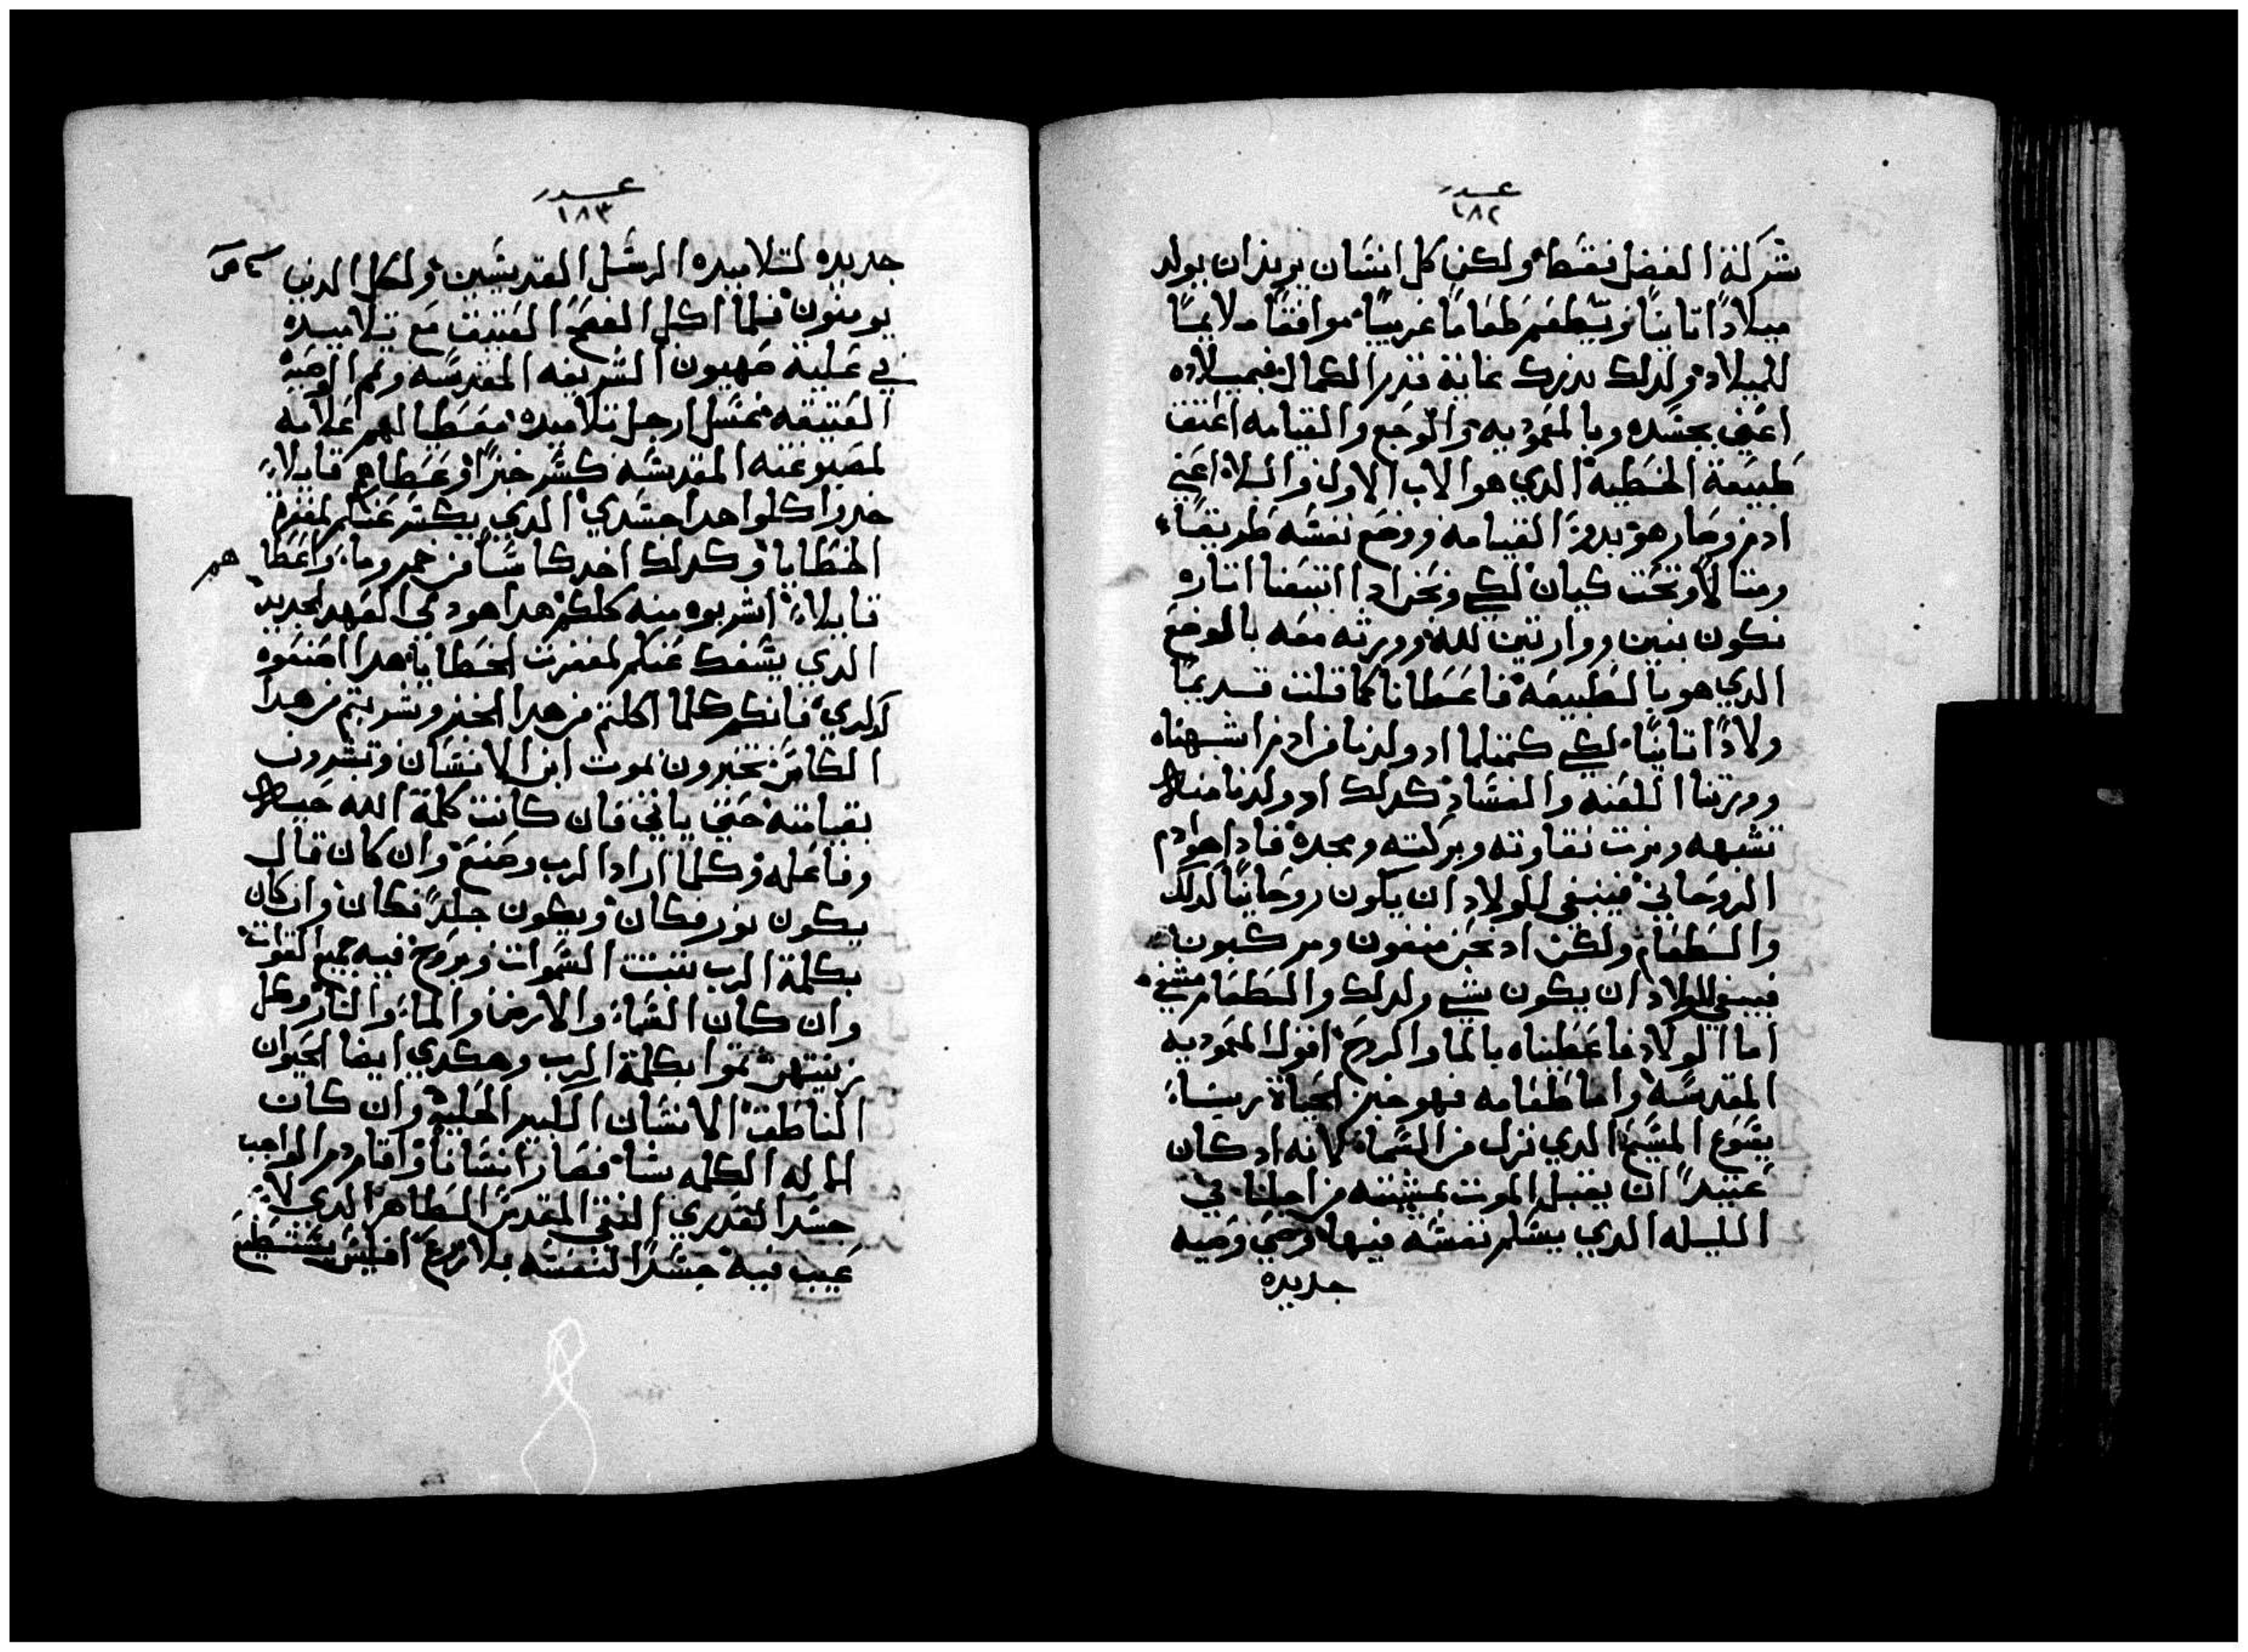 عدد
١٨٢
شركة الفضل فقط ولكن كل انسان يريد ان يولد
ميلادًا تانيًا ويتطعم طعامًا غريبًا موافقًا ملايمًا
للميلاد ولدلك يدرك غاية قدر الكمال فبميلاده
اعني بجسده وبالمعموديه والوجع والقيامه اعتق
طبيعة الخطيه الدي هو الاب الاول والبلاد اعني
ادم وصار هو بدو القيامه ووضع نفسه طريقًا
ومتالًا وتحت كيان لكي ونحن ادا اتبعنا اتاره
نكون بنين ووارتين لله وورته معه بالموضع
الدي هو بالطبيعه فاعطانا كما قلت قديمًا
ولادًا تانيًا لكي كمتلما اد ولدنا من ادم اشبهناه
وورتنا اللعنه والفساد كدلك اد ولدنا منه
نشبهه ونرت نقاوته وبركته ومجده فادا هو ادم
الروحاني فينبغي للولاد ان يكون روحانيًا لدلك
والطعام ولكن اد نحن متفون ومركبون
فينبغي للولاد ان يكون شي ولدلك والطعام متني
اما الولاد فاعطيناه بالما والروح اقول المعموديه
المقدسه واما طعامه فهو خبز الحياة ربنا
يسوع المسيح الدي نزل من السما لانه اد كان
عتيدًا ان يقبل الموت بمشيته من اجلنا في
الليله الدي يسلم نفسه فيها وصي وصيه
جديده
عدد
١٨٣
جديده لتلاميده الرسل القديسين ولكل الدين
يومنون فلما اكل الفصح العتيق مع تلاميده
في علية صهيون الشريفه المقدسه وتم الوصية
العتيقه غسل ارجل تلاميده معطيا لهم علامه
لمصبوغته المقدسه كسر خبزًا وعطاهم قايلًا
خدوا كلوا هدا جسدي الدي يكسر عنكم لمغفرة
الخطايا وكدلك اخد كاسًا من خمر وما واعطاهم
قايلًا اشربوه منه كلكم هدا هو دمي العهد الجديد
الدي يسفك عنكم لمغفرت الخطايا هدا اصنعوه
لدكري فانكم كلما اكلتم من هدا الخبز وشربتم من هدا
الكاس تخبرون بموت ابن الانسان وتبشرون
بقيامته حتي ياتي فان كانت كلمة الله حيه
وفاعله وكلما اراد الرب وصنع وان كان قال
يكون نور فكان ويكون جلد فكان وان كان
بكلمة الرب تبتت السموات وبروح فيه جميع القوات
وان كان السما والارض والما والنار وكل
زينتهن تموا بكلمة الرب وهكدي ايضا الحيوان
الناطق الانسان الكبير الجليه وان كان
الماله الكلمه شا فصار انسانًا واقام دم الواجب
جسد العدري النقي المقدس الطاهر الدي لا
عيب فيه جسدًا لنفسه بلا زرع افليس يستطيع